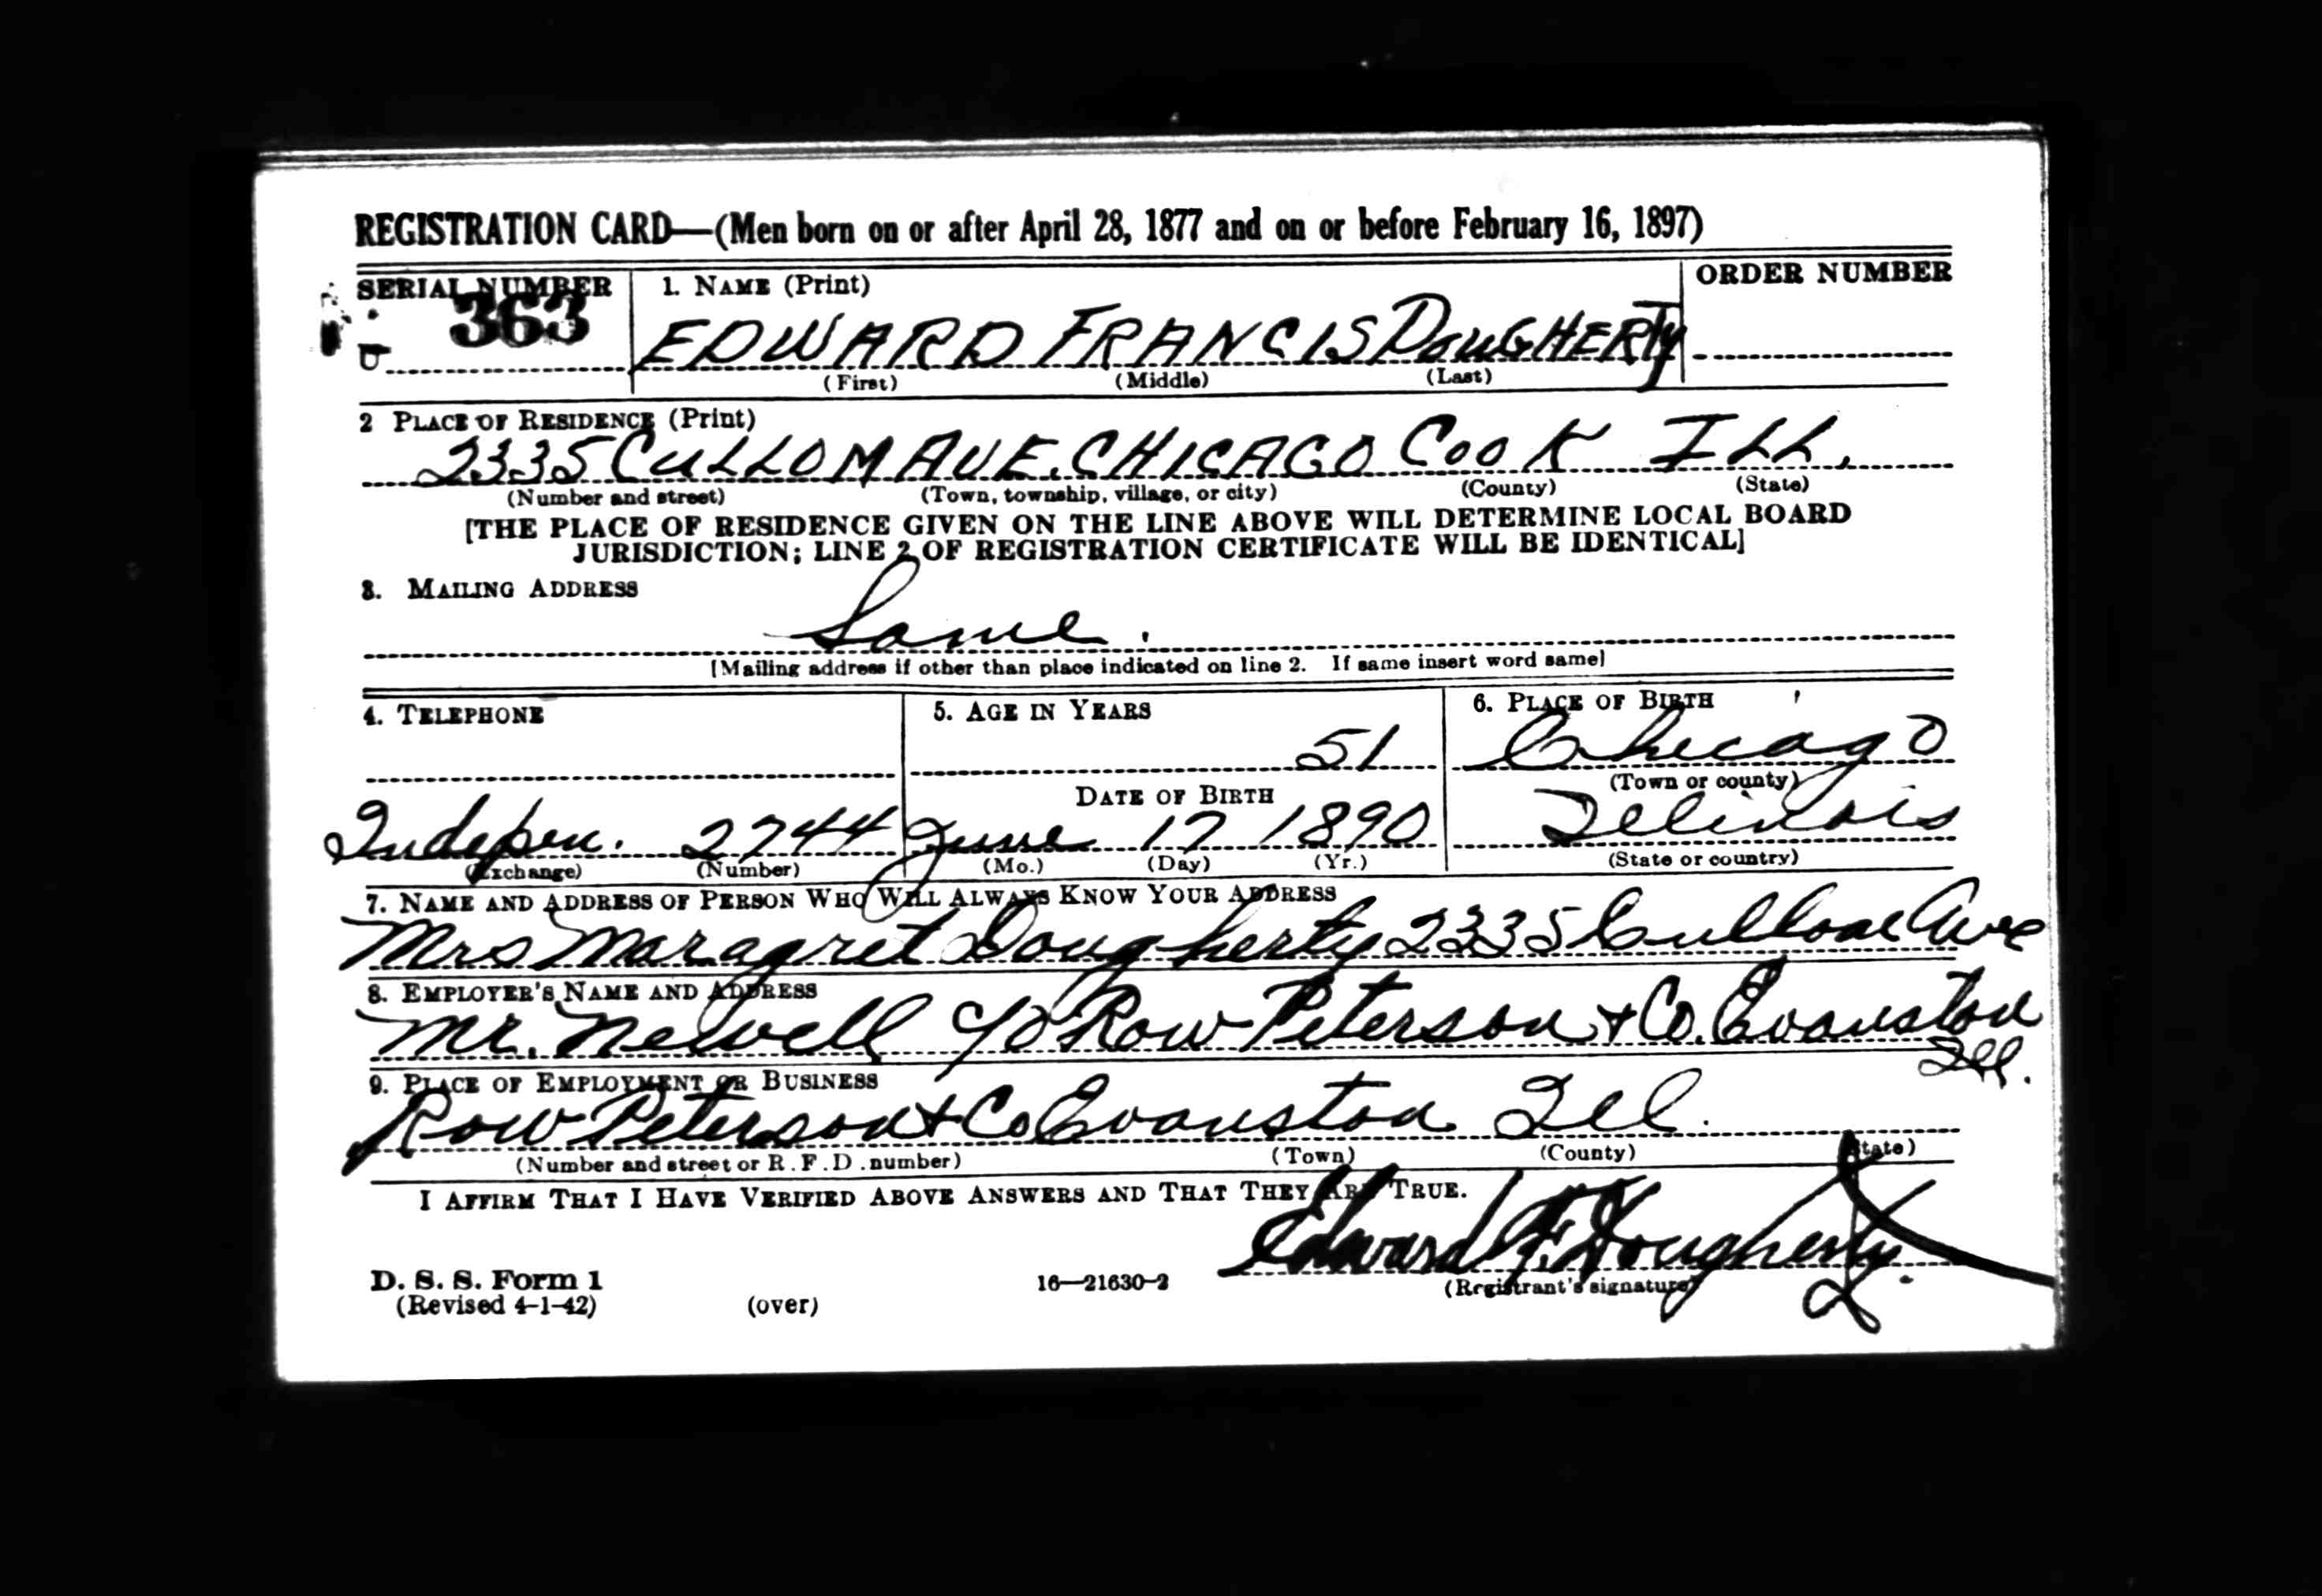 REGISTRATION CARD—(Men born on or after April 28, 1877 and on or before February 16, 1897)
SERIAL NUMBER 1. NAME (Print) ORDER NUMBER
363 EDWARD FRANCIS DOUGHERTY
(First) (Middle) (Last)
2 PLACE OF RESIDENCE (Print)
2335 CULLOM AVE. CHICAGO COOK ILL.
(Number and street) (Town, township, village, or city) (County) (State)
[THE PLACE OF RESIDENCE GIVEN ON THE LINE ABOVE WILL DETERMINE LOCAL BOARD
JURISDICTION; LINE 2 OF REGISTRATION CERTIFICATE WILL BE IDENTICAL]
3. MAILING ADDRESS
Same.
[Mailing address if other than place indicated on line 2. If same insert word same]
4. TELEPHONE 5. AGE IN YEARS 6. PLACE OF BIRTH
51 Chicago
DATE OF BIRTH (Town or county)
Indepen. 2744 June 17 1890 Illinois
(Exchange) (Number) (Mo.) (Day) (Yr.) (State or country)
7. NAME AND ADDRESS OF PERSON WHO WILL ALWAYS KNOW YOUR ADDRESS
Mrs Maragret Dougherty 2335 Cullom Ave
8. EMPLOYER'S NAME AND ADDRESS
Mr. Newell c/o Row Peterson & Co. Evanston
Ill.
9. PLACE OF EMPLOYMENT OR BUSINESS
Row Peterson & Co Evanston Ill.
(Number and street or R.F.D. number) (Town) (County) (State)
I AFFIRM THAT I HAVE VERIFIED ABOVE ANSWERS AND THAT THEY ARE TRUE.
Edward F. Dougherty.
D. S. S. Form 1 16—21630-2 (Registrant's signature)
(Revised 4-1-42) (over)